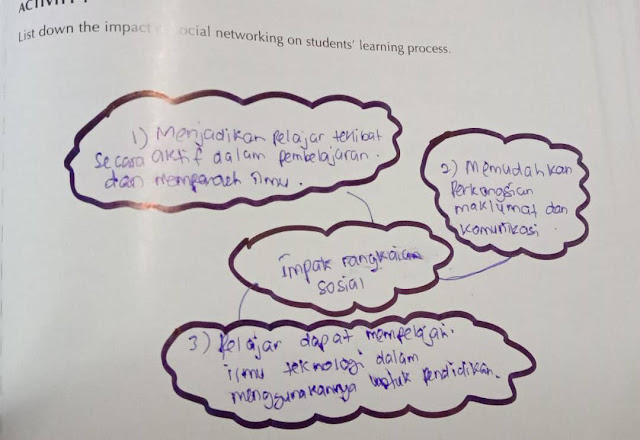 ACTIVITY
List down the impact social networking on students' learning process.
1) Menjadikan Pelajar terlibat
secara aktif dalam pembelajaran.
dan memperoleh ilmu.
2) Memudahkan
Perkongsian
maklumat dan
komunikasi
Impak rangkaian
sosial
3) Pelajar dapat mempelajari.
ilmu teknologi dalam
menggunakannya untuk Pendidikan.